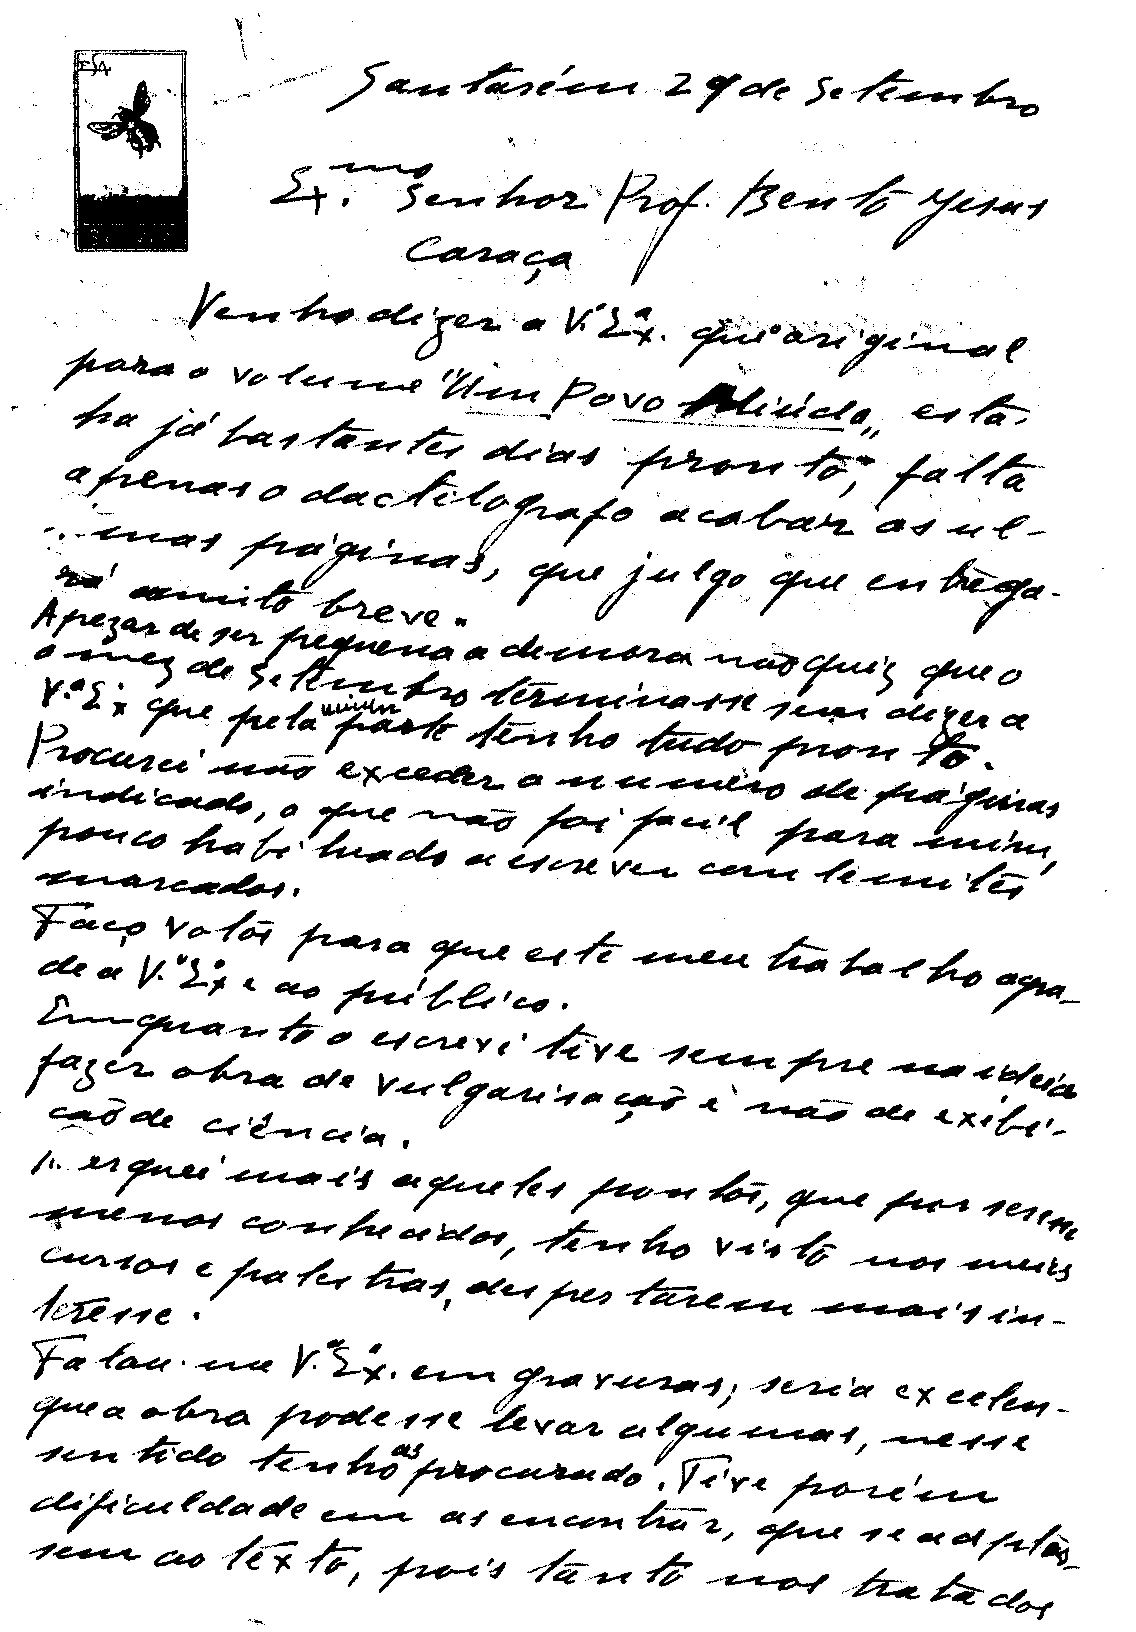 ESA
Santarém 29 de Setembro
Ex.mo Senhor Prof. Bento Jesus
Caraça
Venho dizer a V.ª Ex.ª que o original
para o volume "Um Povo Miúdo", está
ha já bastantes dias pronto, falta
apenas o dactilografo acabar as ul-
imas páginas, que julgo que entrega-
rá muito breve.
Apezar de ser pequena a demora não quiz que o
o mez de Setembro terminasse sem dizer a
V.ª Ex que pela minha parte tenho tudo pronto.
Procurei não exceder o numero de páginas
indicado, o que não foi facil para mim,
pouco habituado a escrever com limites
marcados.
Faço votos para que este meu trabalho agra-
de a V.ª Ex.ª e ao público.
Emquanto o escrevi tive sempre na ideia
fazer obra de vulgarisação e não de exibi-
ção de ciência.
erquei mais aqueles pontos, que por serem
menos conhecidos, tenho visto nos meus
cursos e palestras, despertarem mais in-
teresse.
Falou-me V.ª Ex.ª em gravuras; seria excelen-
que a obra podesse levar algumas, nesse
sentido tenho as procurado. Tive porém
dificuldade em as encontrar, que se adptas-
sem ao texto, pois tanto nos tratados